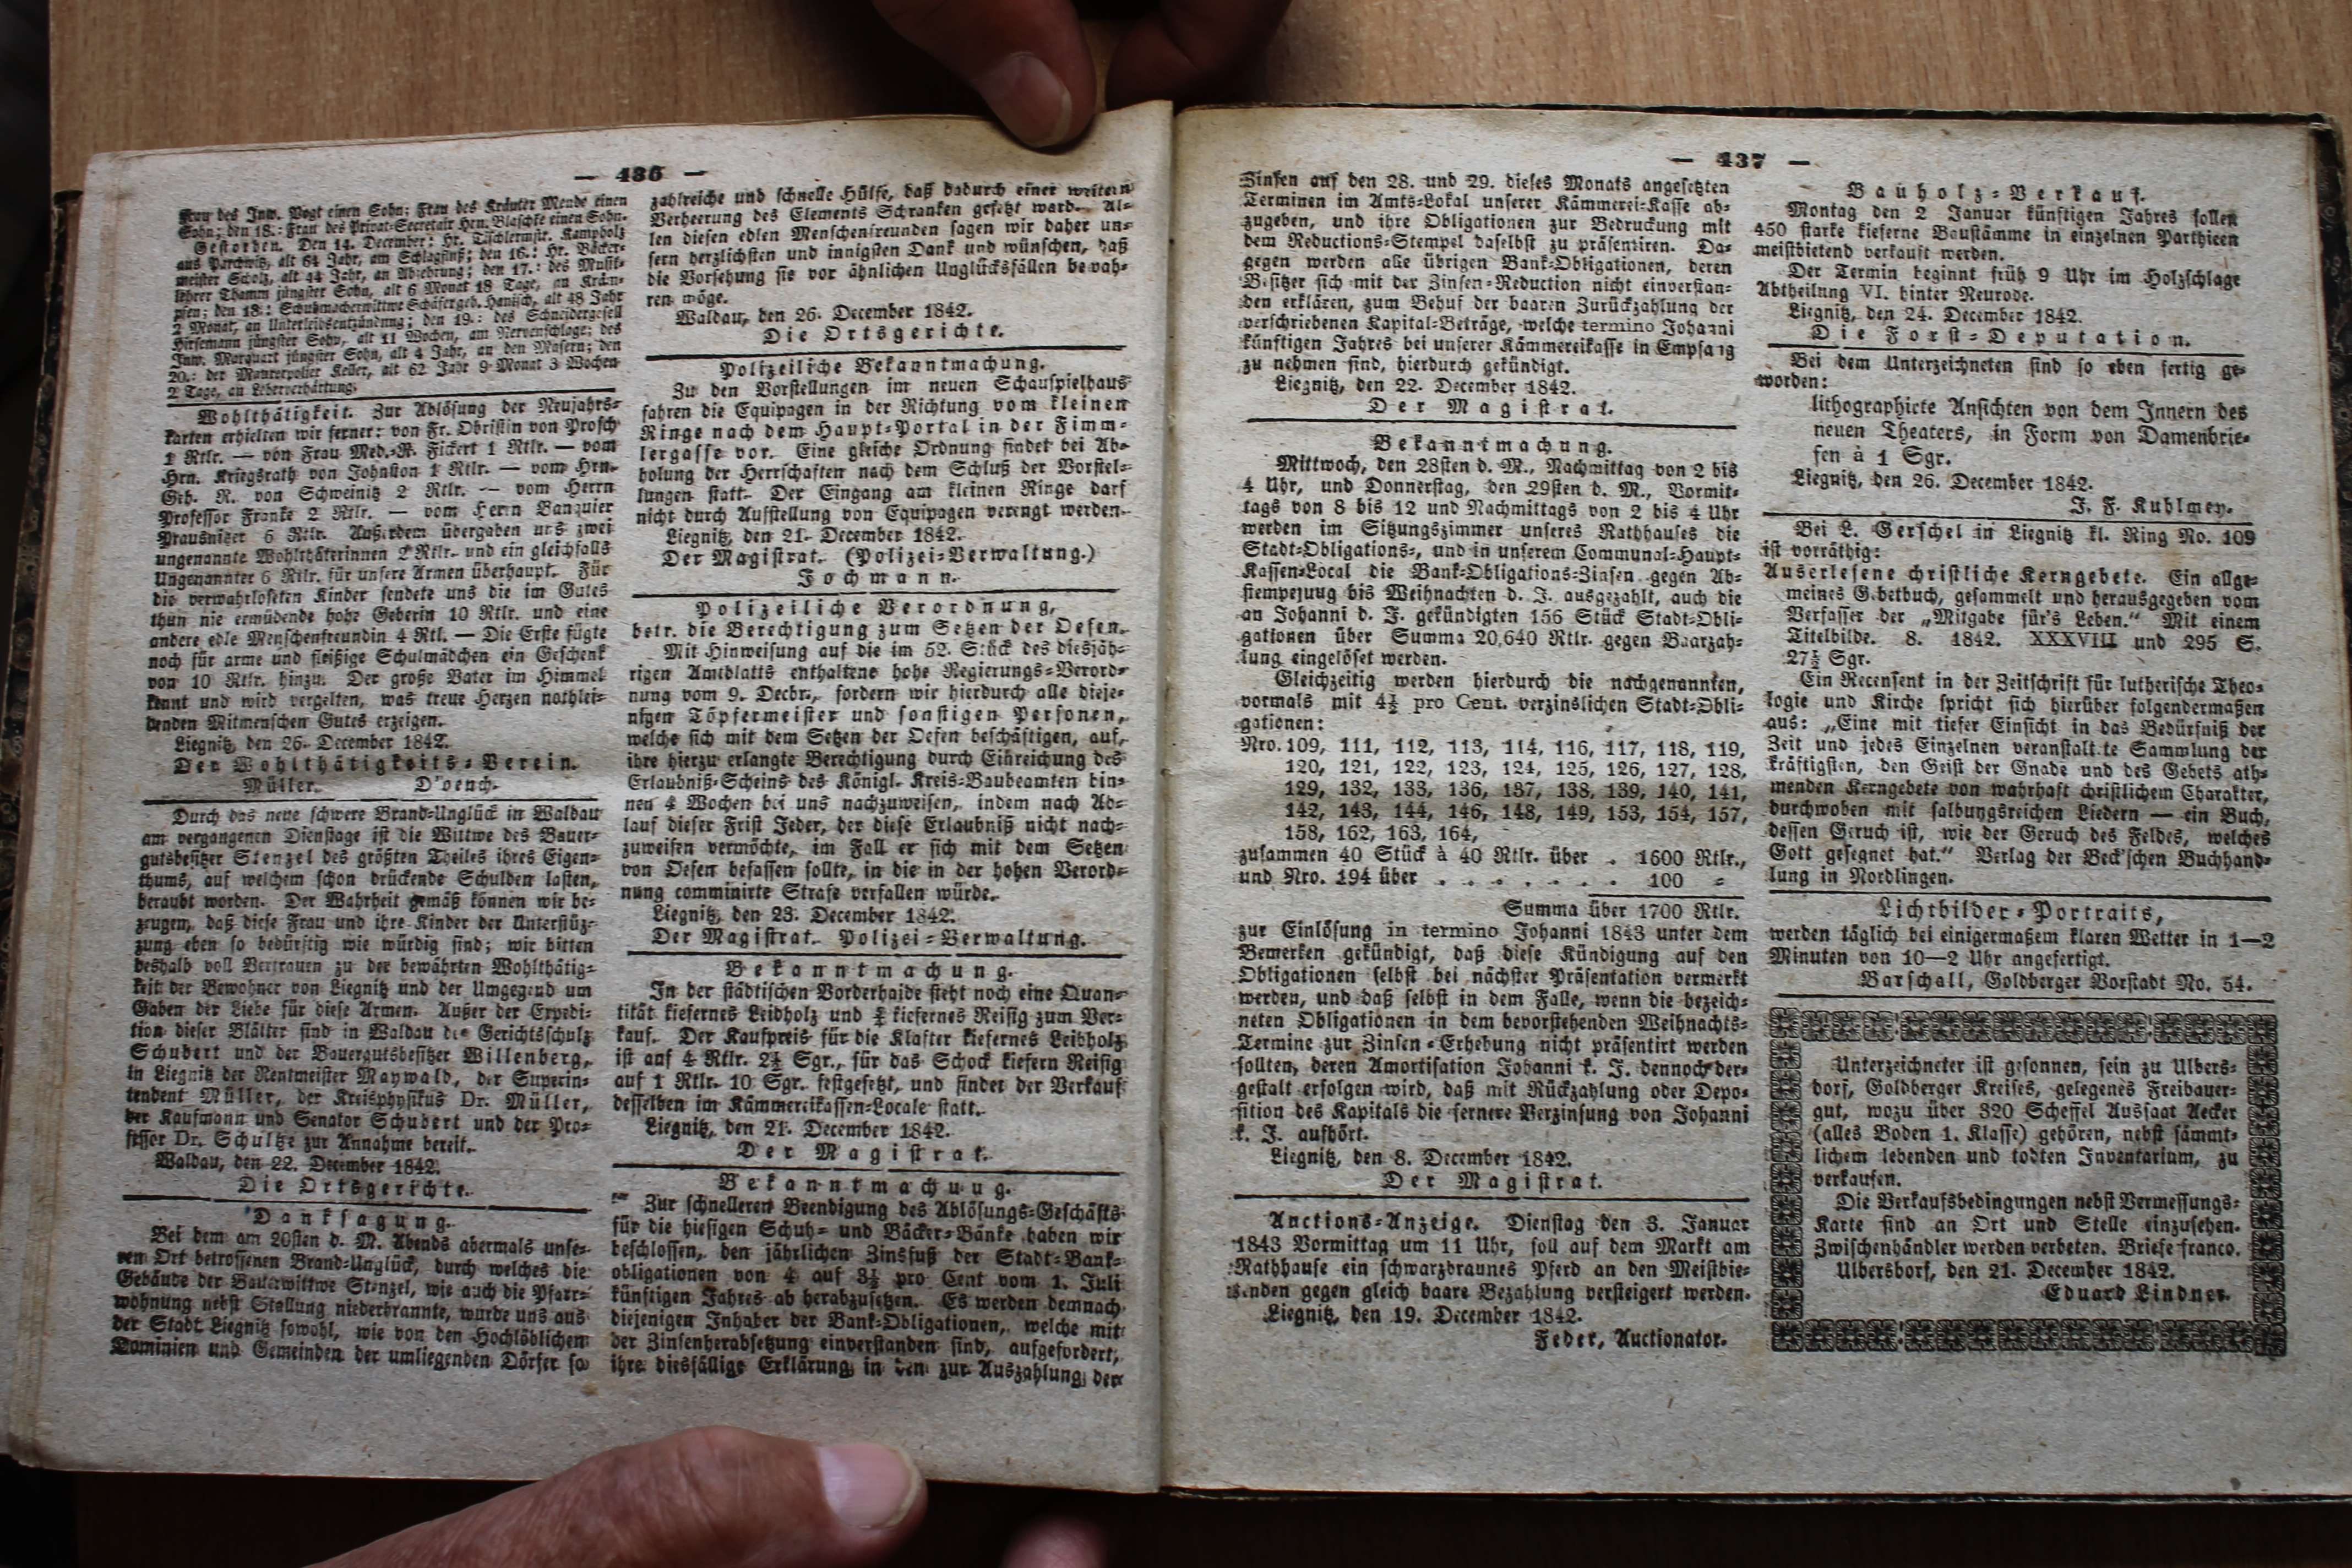 — 436 —
Frau des Inw. Vogt einen Sohn; Frau des Kräuter Mende einen
Sohn; den 18.: Frau des Privat-Secretair Hrn. Blaschke einen Sohn.
Gestorben. Den 14. December: Hr. Tischlermstr. Kampholz
aus Parchwitz, alt 64 Jahr, am Schlagfluß; den 16.: Hr. Bäcker-
meister Scholz, alt 44 Jahr, an Abzehrung; den 17.: des Musik-
lehrer Thamm jüngster Sohn, alt 6 Monat 18 Tage, an Kräm-
pfen; den 18.: Schuhmacherwittwe Schäfer geb. Hanisch, alt 48 Jahr
2 Monat, an Unterleibsentzündung; den 19.: des Schneidergesell
Hirsemann jüngster Sohn, alt 11 Wochen, am Nervenschlage; des
Inw. Marquart jüngster Sohn, alt 4 Jahr, an den Masern; den
20.: der Maurerpolier Keller, alt 62 Jahr 9 Monat 3 Wochen
2 Tage, an Leberverhärtung.
Wohlthätigkeit. Zur Ablösung der Neujahrs-
karten erhielten wir ferner: von Fr. Obristin von Prosch
1 Rtlr. — von Frau Med.-R. Fickert 1 Rtlr. — vom
Hrn. Kriegsrath von Johnston 1 Rtlr. — vom Hrn.
Geh. R. von Schweinitz 2 Rtlr. — vom Herrn
Professor Franke 2 Rtlr. — vom Herrn Banquier
Prausnitzer 6 Rtlr. Außerdem übergaben uns zwei
ungenannte Wohlthäterinnen 2 Rtlr. und ein gleichfalls
Ungenannter 6 Rtlr. für unsere Armen überhaupt. Für
die verwahrloseten Kinder sendete uns die im Gutes
thun nie ermüdende hohe Geberin 10 Rtlr. und eine
andere edle Menschenfreundin 4 Rtl. — Die Erste fügte
noch für arme und fleißige Schulmädchen ein Geschenk
von 10 Rtlr. hinzu. Der große Vater im Himmel
kennt und wird vergelten, was treue Herzen nothlei-
denden Mitmenschen Gutes erzeigen.
Liegnitz, den 26. December 1842.
Der Wohlthätigkeits-Verein.
Müller. D'oench.
Durch das neue schwere Brand-Unglück in Waldau
am vergangenen Dienstage ist die Wittwe des Bauer-
gutsbesitzer Stenzel des größten Theiles ihres Eigen-
thums, auf welchem schon drückende Schulden lasten,
beraubt worden. Der Wahrheit gemäß können wir be-
zeugen, daß diese Frau und ihre Kinder der Unterstüz-
zung eben so bedürftig wie würdig sind; wir bitten
deshalb voll Vertrauen zu der bewährten Wohlthätig-
keit der Bewohner von Liegnitz und der Umgegend um
Gaben der Liebe für diese Armen. Außer der Expedi-
tion dieser Blätter sind in Waldau der Gerichtsschulz
Schubert und der Bauergutsbesitzer Willenberg,
in Liegnitz der Rentmeister Maywald, der Superin-
tendent Müller, der Kreisphysikus Dr. Müller,
der Kaufmann und Senator Schubert und der Pro-
fessor Dr. Schultze zur Annahme bereit.
Waldau, den 22. December 1842.
Die Ortsgerichte.
Danksagung.
Bei dem am 20sten d. M. Abends abermals unse-
ren Ort betroffenen Brand-Unglück, durch welches die
Gebäude der Bauerwittwe Stenzel, wie auch die Pfarr-
wohnung nebst Stallung niederbrannte, wurde uns aus
der Stadt Liegnitz sowohl, wie von den Hochlöblichen
Dominien und Gemeinden der umliegenden Dörfer so
zahlreiche und schnelle Hülfe, daß dadurch einer weitern
Verheerung des Elements Schranken gesetzt ward. Al-
len diesen edlen Menschenfreunden sagen wir daher un-
sern herzlichsten und innigsten Dank und wünschen, daß
die Vorsehung sie vor ähnlichen Unglücksfällen bewah-
ren möge.
Waldau, den 26. December 1842.
Die Ortsgerichte.
Polizeiliche Bekanntmachung.
Zu den Vorstellungen im neuen Schauspielhaus
fahren die Equipagen in der Richtung vom kleinen
Ringe nach dem Haupt-Portal in der Fimm-
lergasse vor. Eine gleiche Ordnung findet bei Ab-
holung der Herrschaften nach dem Schluß der Vorstel-
lungen statt. Der Eingang am kleinen Ringe darf
nicht durch Aufstellung von Equipagen verengt werden.
Liegnitz, den 21. December 1842.
Der Magistrat. (Polizei-Verwaltung.)
Jochmann.
Polizeiliche Verordnung,
betr. die Berechtigung zum Setzen der Oefen.
Mit Hinweisung auf die im 52. Stück des diesjäh-
rigen Amtsblatts enthaltene hohe Regierungs-Verord-
nung vom 9. Decbr., fordern wir hierdurch alle dieje-
nigen Töpfermeister und sonstigen Personen,
welche sich mit dem Setzen der Oefen beschäftigen, auf,
ihre hierzu erlangte Berechtigung durch Einreichung des
Erlaubniß-Scheins des Königl. Kreis-Baubeamten bin-
nen 4 Wochen bei uns nachzuweisen, indem nach Ab-
lauf dieser Frist Jeder, der diese Erlaubniß nicht nach-
zuweisen vermöchte, im Fall er sich mit dem Setzen
von Oefen befassen sollte, in die in der hohen Verord-
nung comminirte Strafe verfallen würde.
Liegnitz, den 23. December 1842.
Der Magistrat. Polizei-Verwaltung.
Bekanntmachung.
In der städtischen Vorderhaide steht noch eine Quan-
tität kiefernes Leibholz und kiefernes Reisig zum Ver-
kauf. Der Kaufpreis für die Klafter kiefernes Leibholz
ist auf 4 Rtlr. 2½ Sgr., für das Schock kiefern Reisig
auf 1 Rtlr. 10 Sgr. festgesetzt, und findet der Verkauf
desselben im Kämmereikassen-Locale statt.
Liegnitz, den 21. December 1842.
Der Magistrat.
Bekanntmachuug.
Zur schnelleren Beendigung des Ablösungs-Geschäfts
für die hiesigen Schuh- und Bäcker-Bänke haben wir
beschlossen, den jährlichen Zinsfuß der Stadt-Bank-
obligationen von 4 auf 3½ pro Cent vom 1. Juli
künftigen Jahres ab herabzusetzen. Es werden demnach
diejenigen Inhaber der Bank-Obligationen, welche mit
der Zinsenherabsetzung einverstanden sind, aufgefordert,
ihre diesfällige Erklärung in den zur Auszahlung der
— 437 —
Zinsen auf den 28. und 29. dieses Monats angesetzten
Terminen im Amts-Lokal unserer Kämmerei-Kasse ab-
zugeben, und ihre Obligationen zur Bedruckung mit
dem Reductions-Stempel daselbst zu präsentiren. Da-
gegen werden alle übrigen Bank-Obligationen, deren
Besitzer sich mit der Zinsen-Reduction nicht einverstan-
den erklären, zum Behuf der baaren Zurückzahlung der
verschriebenen Kapital-Beträge, welche termino Johanni
künftigen Jahres bei unserer Kämmereikasse in Empfang
zu nehmen sind, hierdurch gekündigt.
Liegnitz, den 22. December 1842.
Der Magistrat.
Bekanntmachung.
Mittwoch, den 28sten d. M., Nachmittag von 2 bis
4 Uhr, und Donnerstag, den 29sten d. M., Vormit-
tags von 8 bis 12 und Nachmittags von 2 bis 4 Uhr
werden im Sitzungszimmer unseres Rathhauses die
Stadt-Obligations-, und in unserem Communal-Haupt-
Kassen-Local die Bank-Obligations-Zinsen gegen Ab-
stempejuug bis Weihnachten d. J. ausgezahlt, auch die
an Johanni d. J. gekündigten 156 Stück Stadt-Obli-
gationen über Summa 20,640 Rtlr. gegen Baarzah-
lung eingelöset werden.
Gleichzeitig werden hierdurch die nachgenannten,
vormals mit 4½ pro Cent. verzinslichen Stadt-Obli-
gationen:
Nro. 109, 111, 112, 113, 114, 116, 117, 118, 119,
120, 121, 122, 123, 124, 125, 126, 127, 128,
129, 132, 133, 136, 137, 138, 139, 140, 141,
142, 143, 144, 146, 148, 149, 153, 154, 157,
158, 162, 163, 164,
zusammen 40 Stück à 40 Rtlr. über . 1600 Rtlr.,
und Nro. 194 über . . . . . . . 100 =
Summa über 1700 Rtlr.
zur Einlösung in termino Johanni 1843 unter dem
Bemerken gekündigt, daß diese Kündigung auf den
Obligationen selbst bei nächster Präsentation vermerkt
werden, und daß selbst in dem Falle, wenn die bezeich-
neten Obligationen in dem bevorstehenden Weihnachts-
Termine zur Zinsen-Erhebung nicht präsentirt werden
sollten, deren Amortisation Johanni k. J. dennoch der-
gestalt erfolgen wird, daß mit Rückzahlung oder Depo-
sition des Kapitals die fernere Verzinsung von Johanni
k. J. aufhört.
Liegnitz, den 8. December 1842.
Der Magistrat.
Auctions-Anzeige. Dienstag den 3. Januar
1843 Vormittag um 11 Uhr, soll auf dem Markt am
Rathhause ein schwarzbraunes Pferd an den Meistbie-
tenden gegen gleich baare Bezahlung versteigert werden.
Liegnitz, den 19. December 1842.
Feder, Auctionator.
Bauholz-Verkauf.
Montag den 2 Januar künftigen Jahres sollen
450 starke kieferne Baustämme in einzelnen Parthieen
meistbietend verkauft werden.
Der Termin beginnt früh 9 Uhr im Holzschlage
Abtheilung VI. hinter Neurode.
Liegnitz, den 24. December 1842.
Die Forst-Deputation.
Bei dem Unterzeichneten sind so eben fertig ge-
worden:
lithographirte Ansichten von dem Innern des
neuen Theaters, in Form von Damenbrie-
fen à 1 Sgr.
Liegnitz, den 26. December 1842.
J. F. Kuhlmey.
Bei L. Gerschel in Liegnitz kl. Ring No. 109
ist vorräthig:
Auserlesene christliche Kerngebete. Ein allge-
meines Gebetbuch, gesammelt und herausgegeben vom
Verfasser der „Mitgabe für's Leben.“ Mit einem
Titelbilde. 8. 1842. XXXVIII und 295 S.
27½ Sgr.
Ein Recensent in der Zeitschrift für lutherische Theo-
logie und Kirche spricht sich hierüber folgendermaßen
aus: „Eine mit tiefer Einsicht in das Bedürfniß der
Zeit und jedes Einzelnen veranstaltete Sammlung der
kräftigsten, den Geist der Gnade und des Gebets ath-
menden Kerngebete von wahrhaft christlichem Charakter,
durchwoben mit salbungsreichen Liedern — ein Buch,
dessen Geruch ist, wie der Geruch des Feldes, welches
Gott gesegnet hat.“ Verlag der Beck'schen Buchhand-
lung in Nordlingen.
Lichtbilder-Portraits,
werden täglich bei einigermaßem klaren Wetter in 1—2
Minuten von 10—2 Uhr angefertigt.
Barschall, Goldberger Vorstadt No. 54.
Unterzeichneter ist gesonnen, sein zu Ulbers-
dorf, Goldberger Kreises, gelegenes Freibauer-
gut, wozu über 320 Scheffel Aussaat Aecker
(alles Boden 1. Klasse) gehören, nebst sämmt-
lichem lebenden und todten Inventarium, zu
verkaufen.
Die Verkaufsbedingungen nebst Vermessungs-
Karte sind an Ort und Stelle einzusehen.
Zwischenhändler werden verbeten. Briefe franco.
Ulbersdorf, den 21. December 1842.
Eduard Lindner.